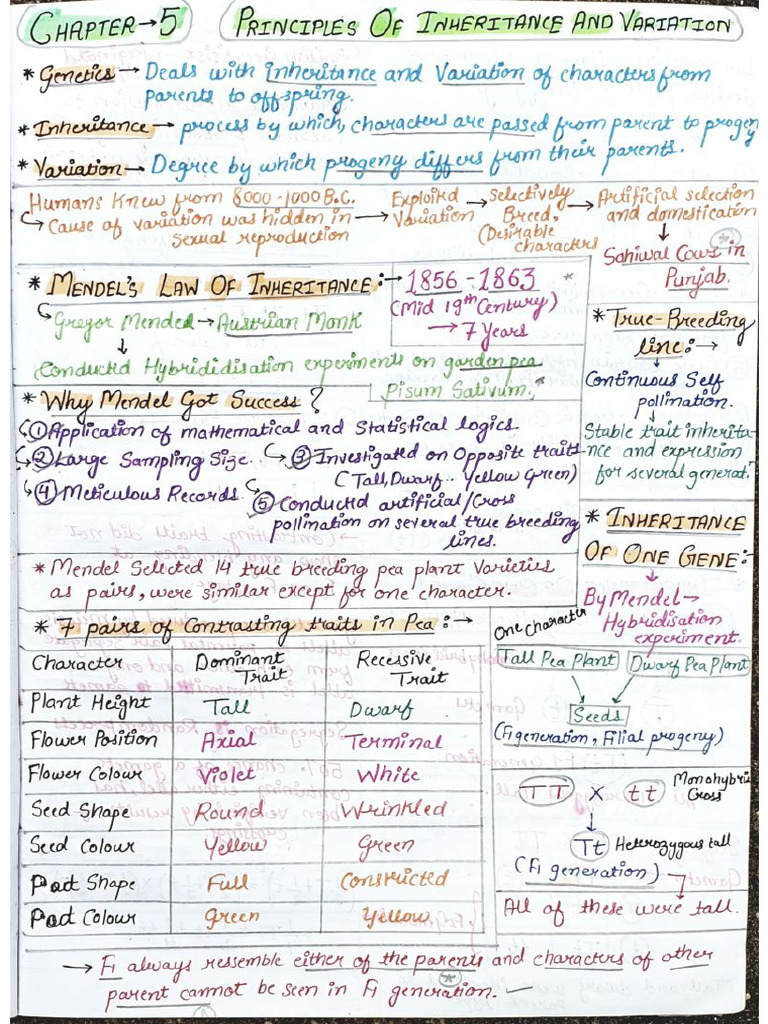 CHAPTER → 5 PRINCIPLES OF INHERITANCE AND VARIATION
* Genetics → Deals with inheritance and Variation of characters from
parents to offspring.
* Inheritance → process by which, characters are passed from parent to progeny
* Variation → Degree by which progeny differs from their parents.
Humans Knew from 8000 - 1000 B.C.
Cause of variation was hidden in
sexual reproduction
→ Exploited
Variation
→ Selectively
Breed,
(Desirable
characters
→ Artificial selection
and domestication
Sahiwal Cows in
Punjab.
* MENDEL'S LAW OF INHERITANCE: →
1856 - 1863
(Mid 19th Century)
→ 7 Years
Gregor Mendel → Austrian Monk
Conducted Hybrididisation experiments on garden pea
Pisum Sativum.
* WHY MENDEL GOT SUCCESS?
① Application of mathematical and Statistical logics.
② Large Sampling Size.
③ Investigated on Opposite traits
(Tall, Dwarf.. Yellow Green)
④ Meticulous Records.
⑤ Conducted artificial/Cross
pollination on several true breeding
lines.
* Mendel Selected 14 true breeding pea plant Varieties
as pairs, were similar except for one character.
* True-Breeding
line: →
Continuous Self
pollination.
Stable trait inherita-
nce and expression
for several generat.
* INHERITANCE
OF ONE GENE:
By Mendel →
Hybridisation
experiment.
One Character
Tall Pea Plant Dwarf Pea Plant
Seeds
(F1 generation, Filial progeny)
TT X tt Monohybrid
Cross
Tt Heterozygous tall
(F1 generation)
All of these were tall.
* 7 pairs of Contrasting traits in Pea: →
Character Dominant Trait Recessive Trait
Plant Height Tall Dwarf
Flower Position Axial Terminal
Flower Colour Violet White
Seed Shape Round Wrinkled
Seed Colour Yellow Green
Pod Shape Full Constructed
Pod Colour Green Yellow
→ F1 always ressemble either of the parents and characters of other
parent cannot be seen in F1 generation.